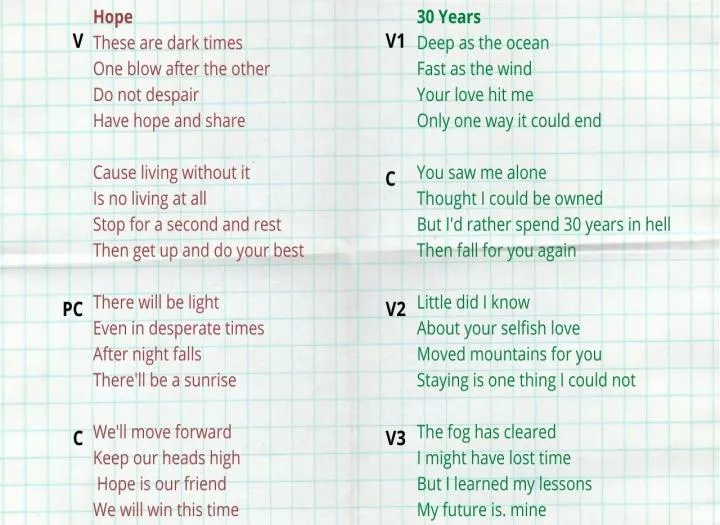 Hope
V These are dark times
One blow after the other
Do not despair
Have hope and share
Cause living without it
Is no living at all
Stop for a second and rest
Then get up and do your best
PC There will be light
Even in desperate times
After night falls
There'll be a sunrise
C We'll move forward
Keep our heads high
Hope is our friend
We will win this time
30 Years
V1 Deep as the ocean
Fast as the wind
Your love hit me
Only one way it could end
C You saw me alone
Thought I could be owned
But I'd rather spend 30 years in hell
Then fall for you again
V2 Little did I know
About your selfish love
Moved mountains for you
Staying is one thing I could not
V3 The fog has cleared
I might have lost time
But I learned my lessons
My future is. mine